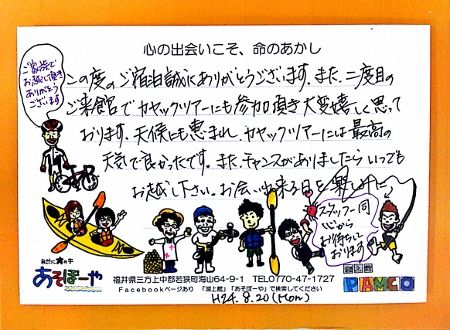 心の出会いこそ、命のあかし
ご家族で
お越し頂き
ありがとう
ございます
この度のご宿泊誠にありがとうございます。また、二度目の
ご来館でカヤックツアーにも参加頂き大変嬉しく思って
おります。天候にも恵まれ、カヤックツアーには最高の
天気で良かったです。また、チャンスがありましたらいつでも
お越し下さい。お会い出来る日を楽しみに
スタッフ一同
心から
お待ちして
おります
自然に大の字
あそぼーや
福井県三方上中郡若狭町海山64-9-1 TEL0770-47-1727
Facebookページあり 「湖上館」「あそぼーや」で検索してください
湖上館
PAMCO
H24.8.20(Mon)